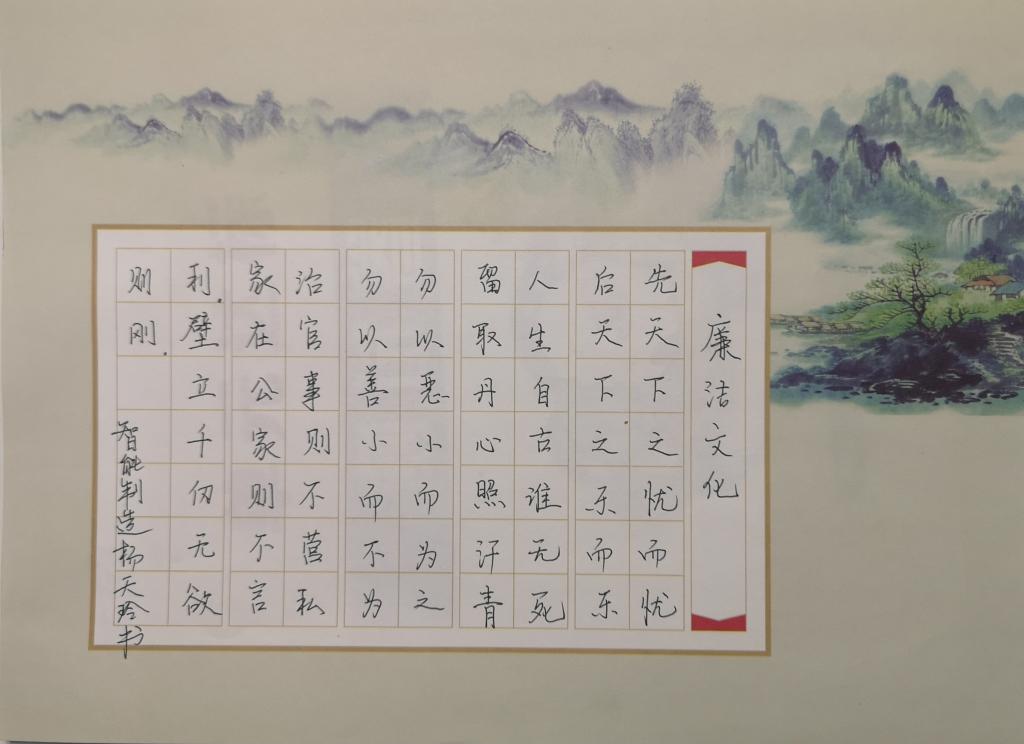 廉洁文化
先天下之忧而忧
后天下之乐而乐
人生自古谁无死
留取丹心照汗青
勿以恶小而为之
勿以善小而不为
治官事则不营私
家在公家则不言
利.壁立千仞无欲
则刚.
智能制造杨天玲书